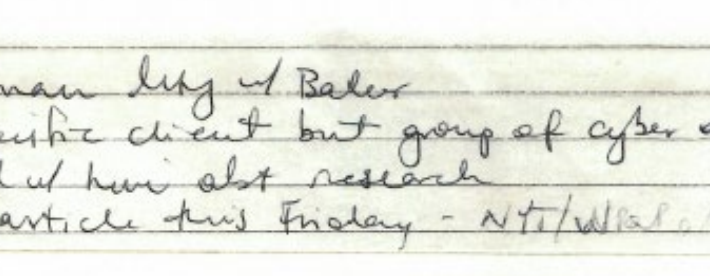 man Mtg w/ Baker
ecific client but group of cyber
d w/ him abt research
article this Friday - NYT/